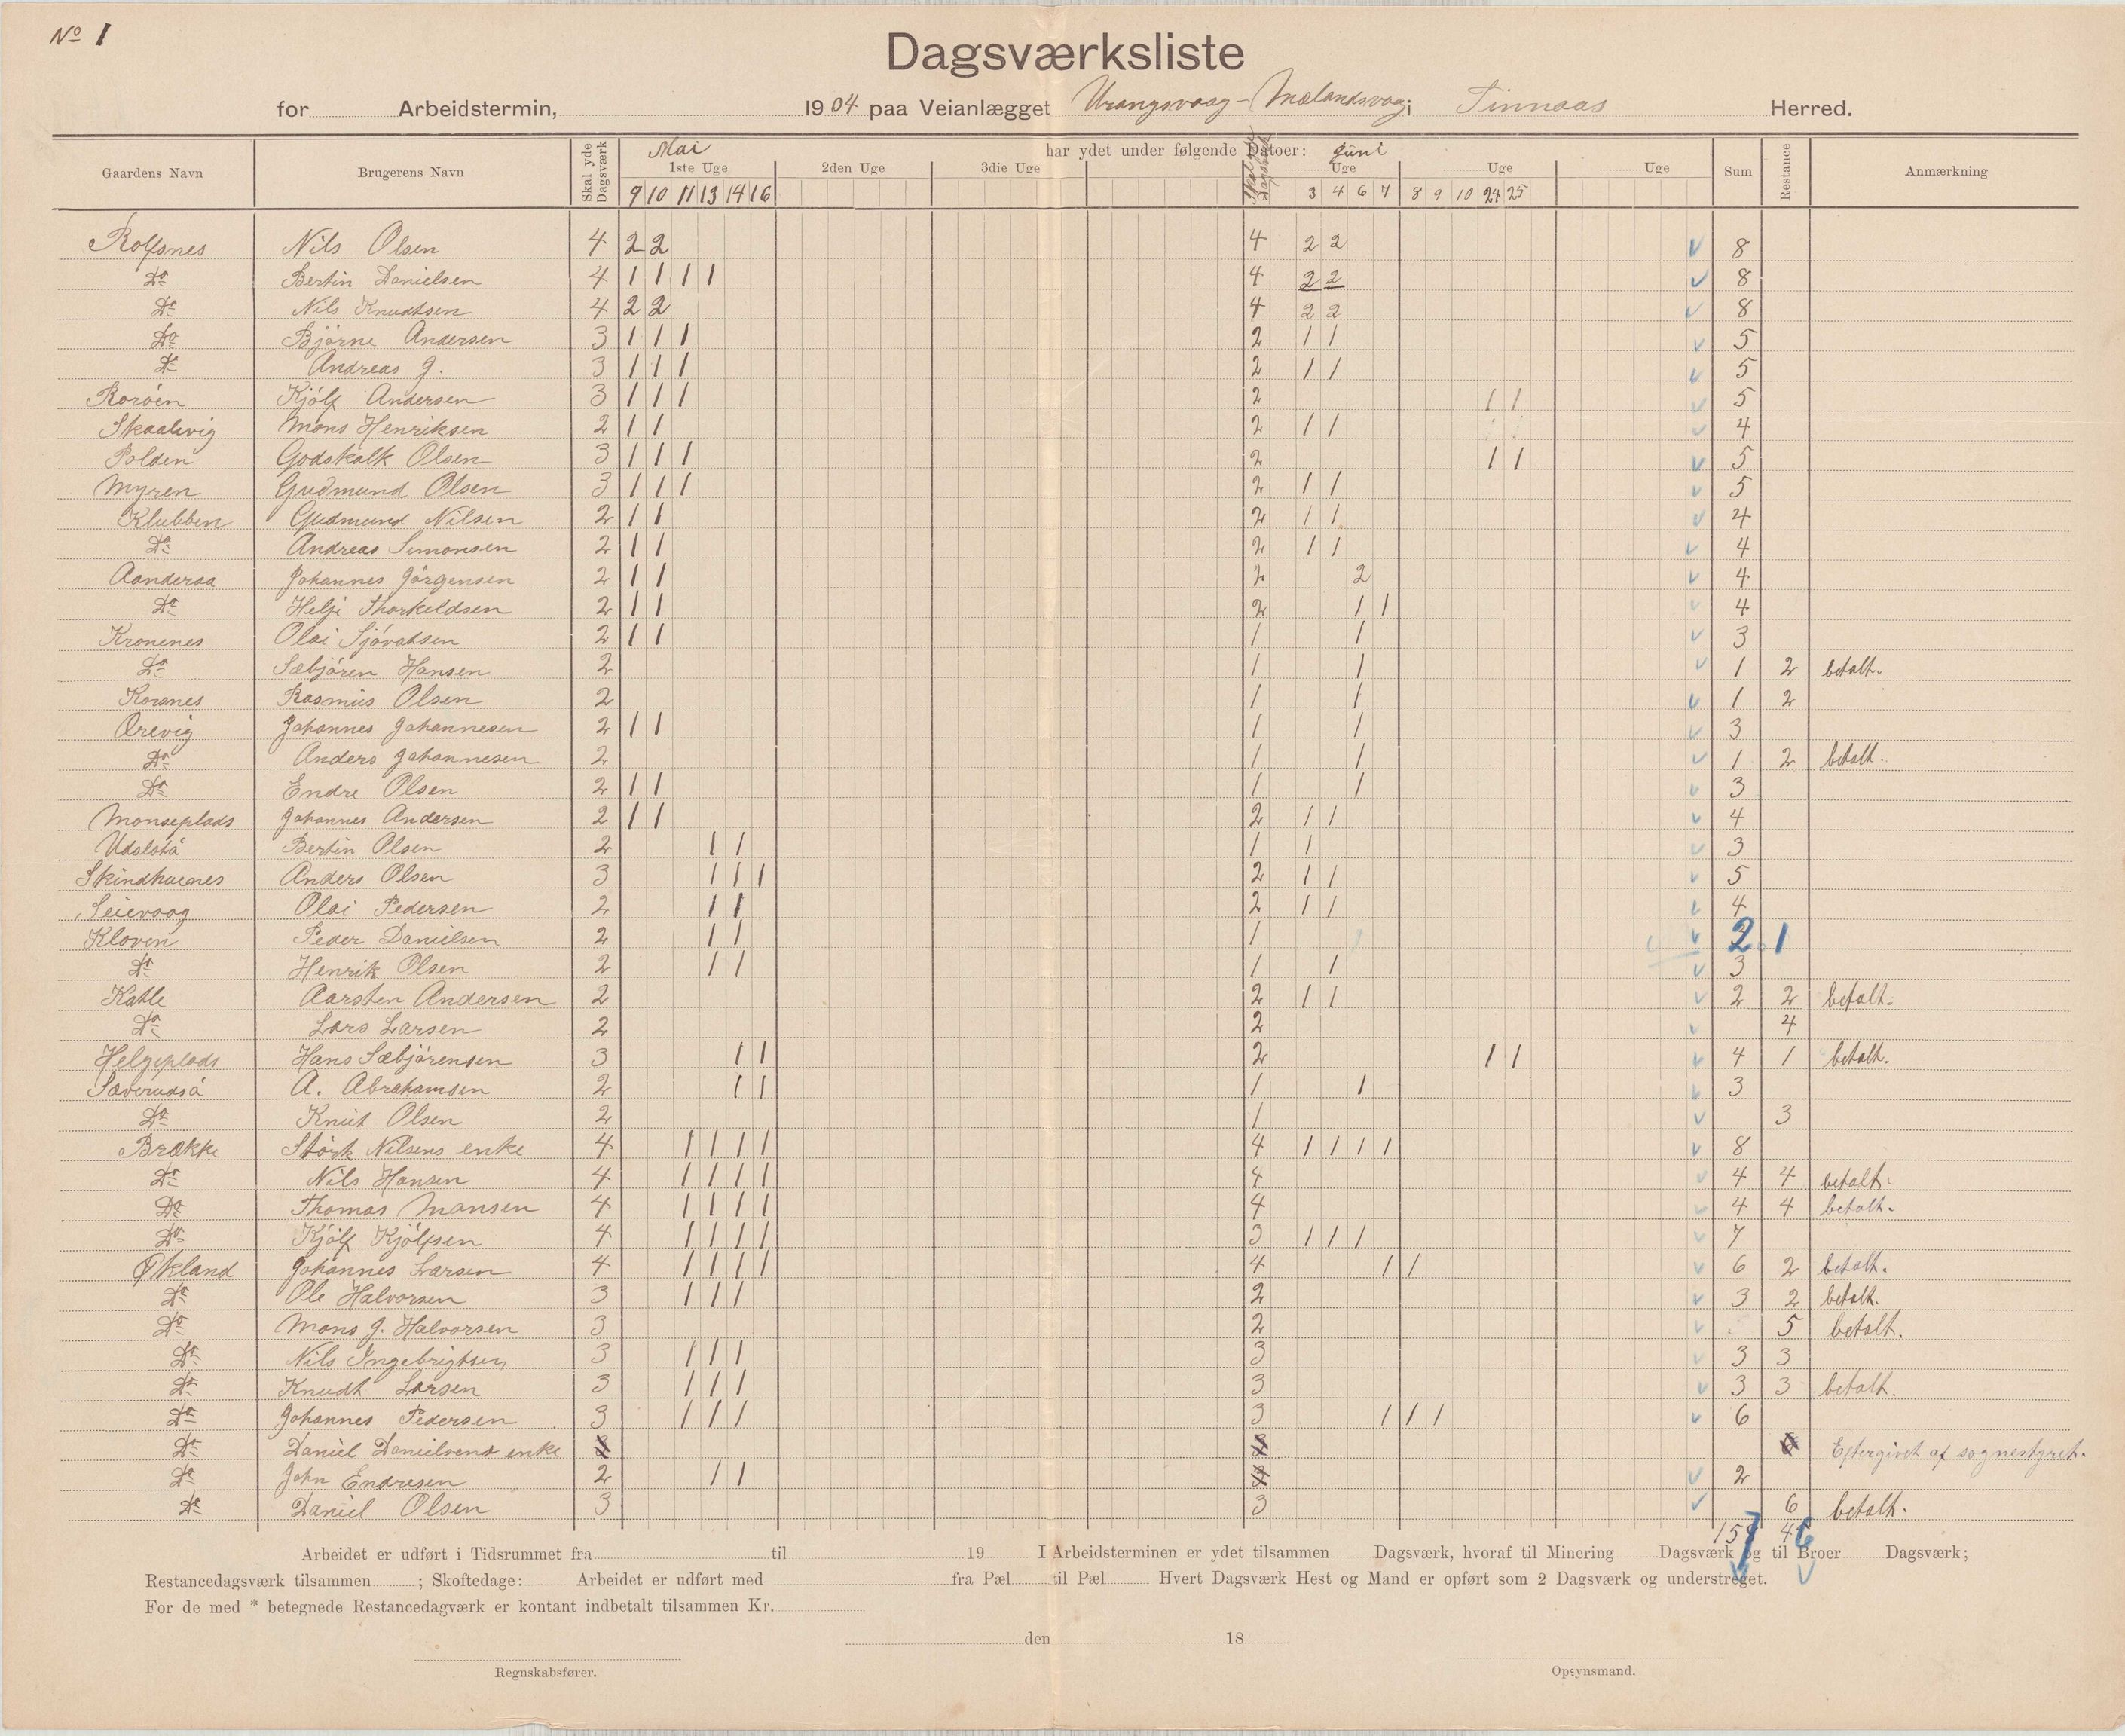 No 1
Dagsværksliste
for Arbeidstermin, 1904 paa Veianlægget Urangsvaag - Mælandsvaag i Finnaas Herred.
Gaardens Navn Brugerens Navn Skal yde Dagsværk Mai 1ste Uge 2den Uge 3die Uge har ydet under følgende Datoer: Skal yde Dagsværk Juni Uge Uge Uge Sum Restance Anmærkning
9 10 11 13 14 16 3 4 6 7 8 9 10 24 25
Rolfsnes Nils Olsen 4 2 2 4 2 2 8
Do Bertin Danielsen 4 1 1 1 1 4 2 2 8
Do Nils Knudtsen 4 2 2 4 2 2 8
Do Bjørne Andersen 3 1 1 1 2 1 1 5
Do Andreas J. 3 1 1 1 2 1 1 5
Rorøen Kjølf Andersen 3 1 1 1 2 1 1 5
Skaalevig Mons Henriksen 2 1 1 2 1 1 4
Polden Godskalk Olsen 3 1 1 1 2 1 1 5
Myren Gudmund Olsen 3 1 1 1 2 1 1 5
Klubben Gudmund Nilsen 2 1 1 2 1 1 4
Do Andreas Simonsen 2 1 1 2 1 1 4
Aanderaa Johannes Jørgensen 2 1 1 2 2 4
Do Helje Thorkeldsen 2 1 1 2 1 1 4
Kronenes Olai Sjøvatsen 2 1 1 1 1 3
Do Sæbjøren Hansen 2 1 1 1 2 betalt.
Korsnes Rasmus Olsen 2 1 1 1 2
Ørevig Johannes Johannesen 2 1 1 1 1 3
Do Anders Johannesen 2 1 1 1 2 betalt.
Do Endre Olsen 2 1 1 1 1 3
Monseplads Johannes Andersen 2 1 1 2 1 1 4
Udslotå Bertin Olsen 2 1 1 1 1 3
Skindhuenes Anders Olsen 3 1 1 1 2 1 1 5
Seievaag Olai Pedersen 2 1 1 2 1 1 4
Kloven Peder Danielsen 2 1 1 1 2 1
Do Henrik Olsen 2 1 1 1 1 3
Katle Aarsten Andersen 2 2 1 1 2 2 betalt.
Do Lars Larsen 2 2 4
Helgeplads Hans Sæbjørensen 3 1 1 2 1 1 4 1 betalt.
Säverudså A. Abrahamsen 2 1 1 1 1 3
Do Knut Olsen 2 1 3
Brække Størk Nilsens enke 4 1 1 1 1 4 1 1 1 1 8
Do Nils Hansen 4 1 1 1 1 4 4 4 betalt.
Do Thomas Monsen 4 1 1 1 1 4 4 4 betalt.
Do Kjølf Kjølfsen 4 1 1 1 1 3 1 1 1 7
Økland Johannes Larsen 4 1 1 1 1 4 1 1 6 2 betalt.
Do Ole Halvorsen 3 1 1 1 2 3 2 betalt.
Do Mons J. Halvorsen 3 2 5 betalt.
Do Nils Ingebrigtsen 3 1 1 1 3 3 3
Do Knudt Larsen 3 1 1 1 3 3 3 betalt.
Do Johannes Pedersen 3 1 1 1 3 1 1 1 6
Do Daniel Danielsens enke Eftergivet af sognestyret.
Do John Endresen 2 1 1 2
Do Daniel Olsen 3 3 6 betalt.
157 46
Arbeidet er udført i Tidsrummet fra til 19 I Arbeidsterminen er ydet tilsammen Dagsværk, hvoraf til Minering Dagsværk og til Broer Dagsværk;
Restancedagsværk tilsammen ; Skoftedage: Arbeidet er udført med fra Pæl til Pæl Hvert Dagsværk Hest og Mand er opført som 2 Dagsværk og understreget.
For de med * betegnede Restancedagværk er kontant indbetalt tilsammen Kr.
den 18
Regnskabsfører. Opsynsmand.